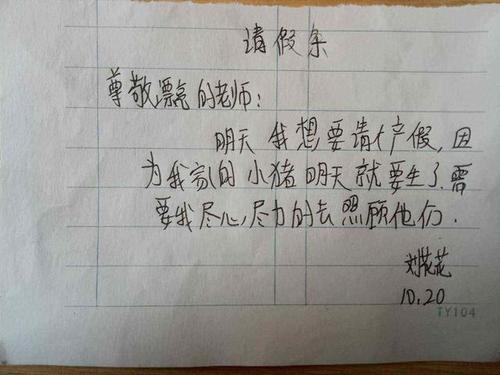 请假条
尊敬漂亮的老师：
明天我想要请个产假，因
为我家的小猪明天就要生了.需
要我尽心,尽力的去照顾他们.
刘花花
10.20
TY104